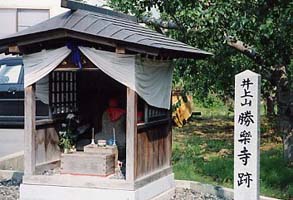 井上山 勝樂寺 跡